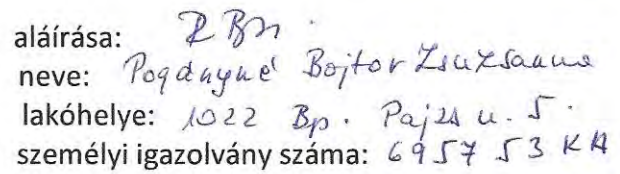 aláírása: PBZs
neve: Pogányné Bojtor Zsuzsanna
lakóhelye: 1022 Bp. Pajzs u. 5.
személyi igazolvány száma: 695753 KA